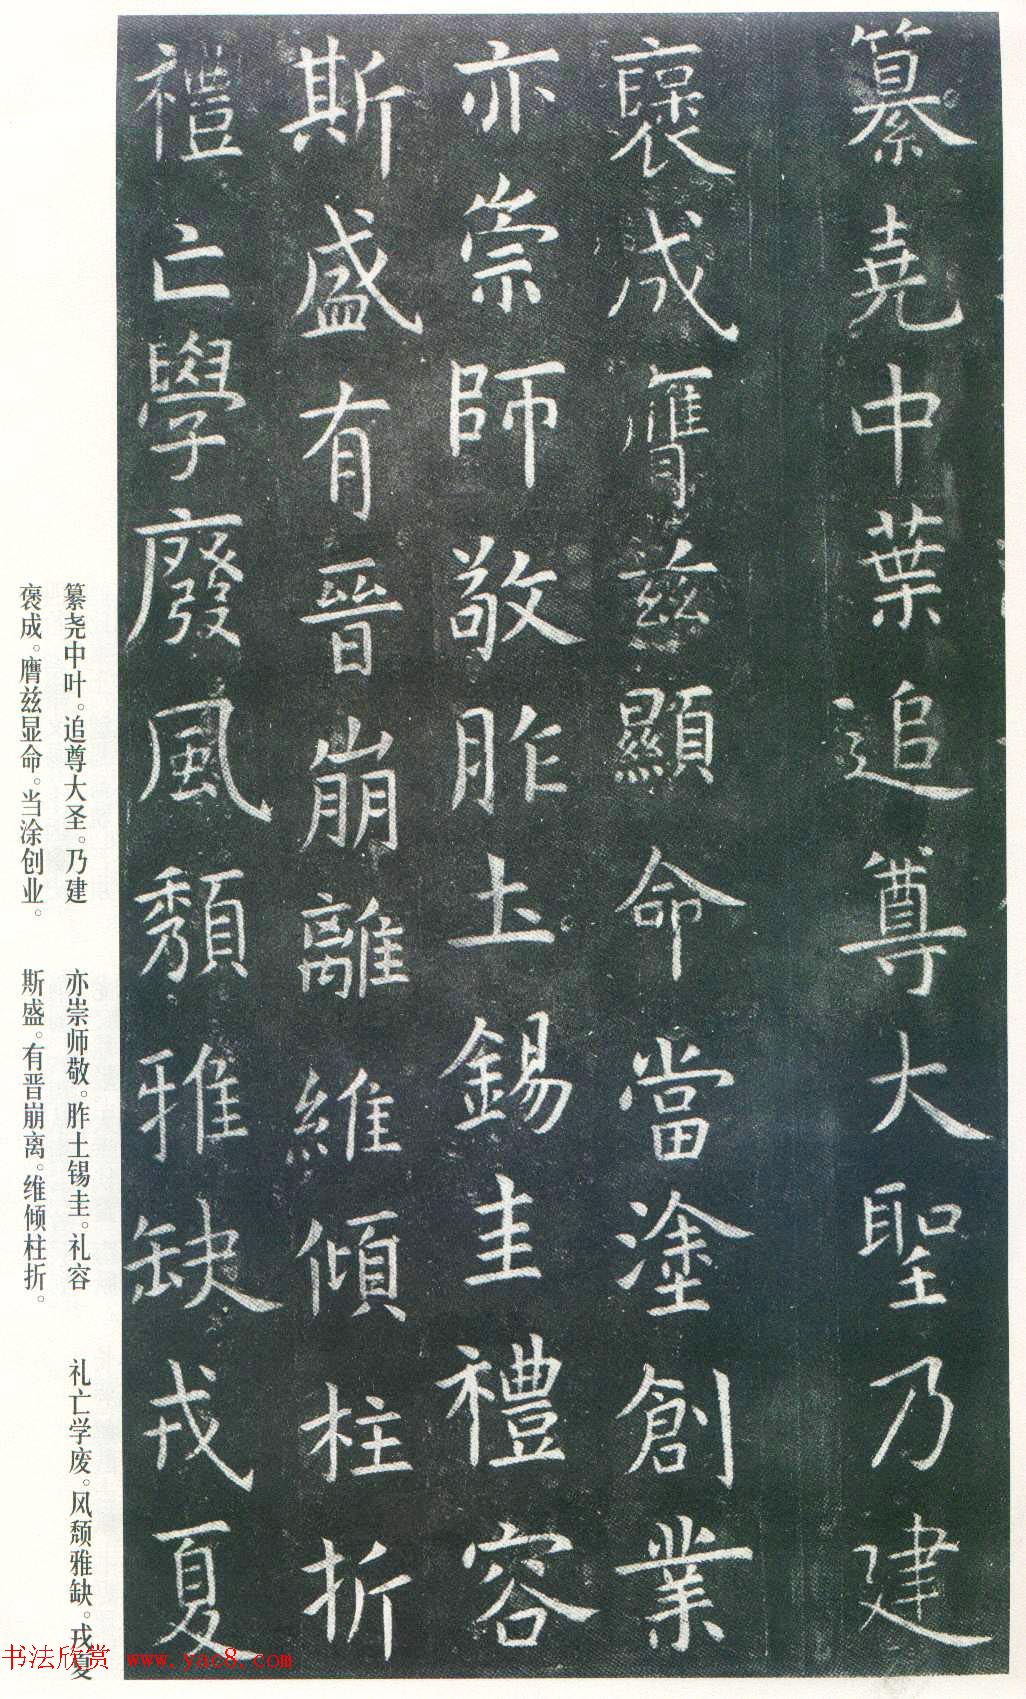 纂堯中葉追尊大聖乃建
襃成膺兹顯命當塗創業
亦崇師敬胙土錫圭禮容
斯盛有晉崩離維傾柱折
禮亡學廢風頽雅缺戎夏
纂尧中叶。追尊大圣。乃建
褒成。膺兹显命。当涂创业。
亦崇师敬。胙土锡圭。礼容
斯盛。有晋崩离。维倾柱折。
礼亡学废。风颓雅缺。戎夏
书法欣赏 www.yac8.com